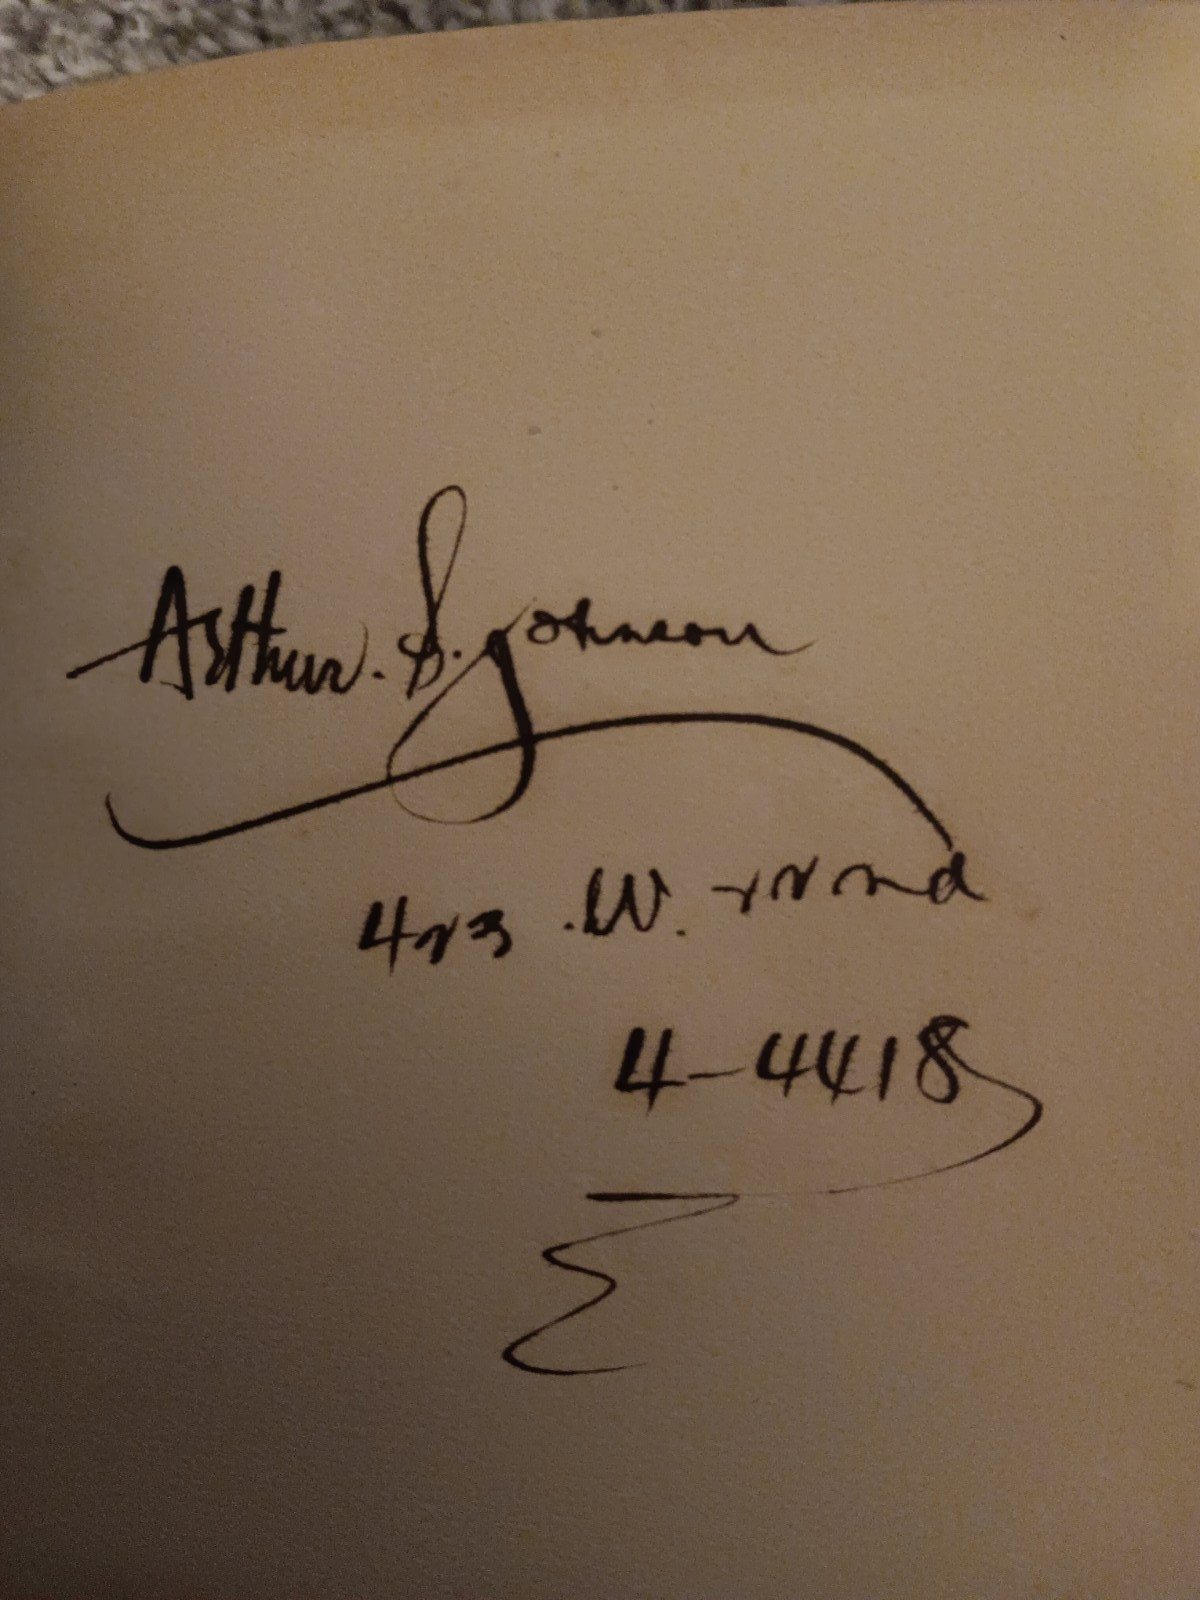 Arthur. S. Johnson
423 .W. 22nd
4-4418